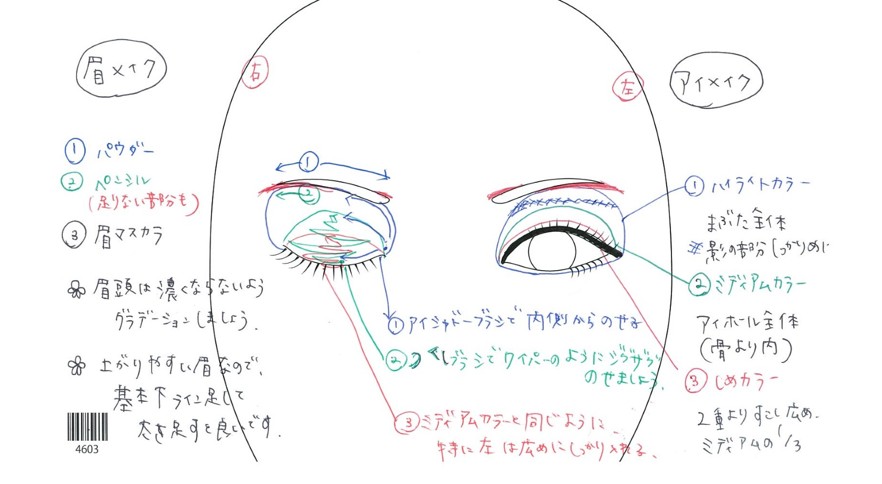 眉メイク
右
左
アイメイク
① パウダー
② ペンシル
(足りない部分も)
③ 眉マスカラ
眉頭は濃くならないよう
グラデーションしましょう.
上がりやすい眉なので、
基本下ライン足して
太さ足すと良いです.
4603
①
②
① アイシャドーブラシで内側からのせる
② ブラシでワイパーのようにジグザグ
のせましょう.
③ ミディアムカラーと同じように、
特に左は広めにしっかり入れる.
① ハイライトカラー
まぶた全体
#影の部分しっかりめに
② ミディアムカラー
アイホール全体
(骨より内)
③ しめカラー
2重よりすこし広め.
ミディアムの1/3